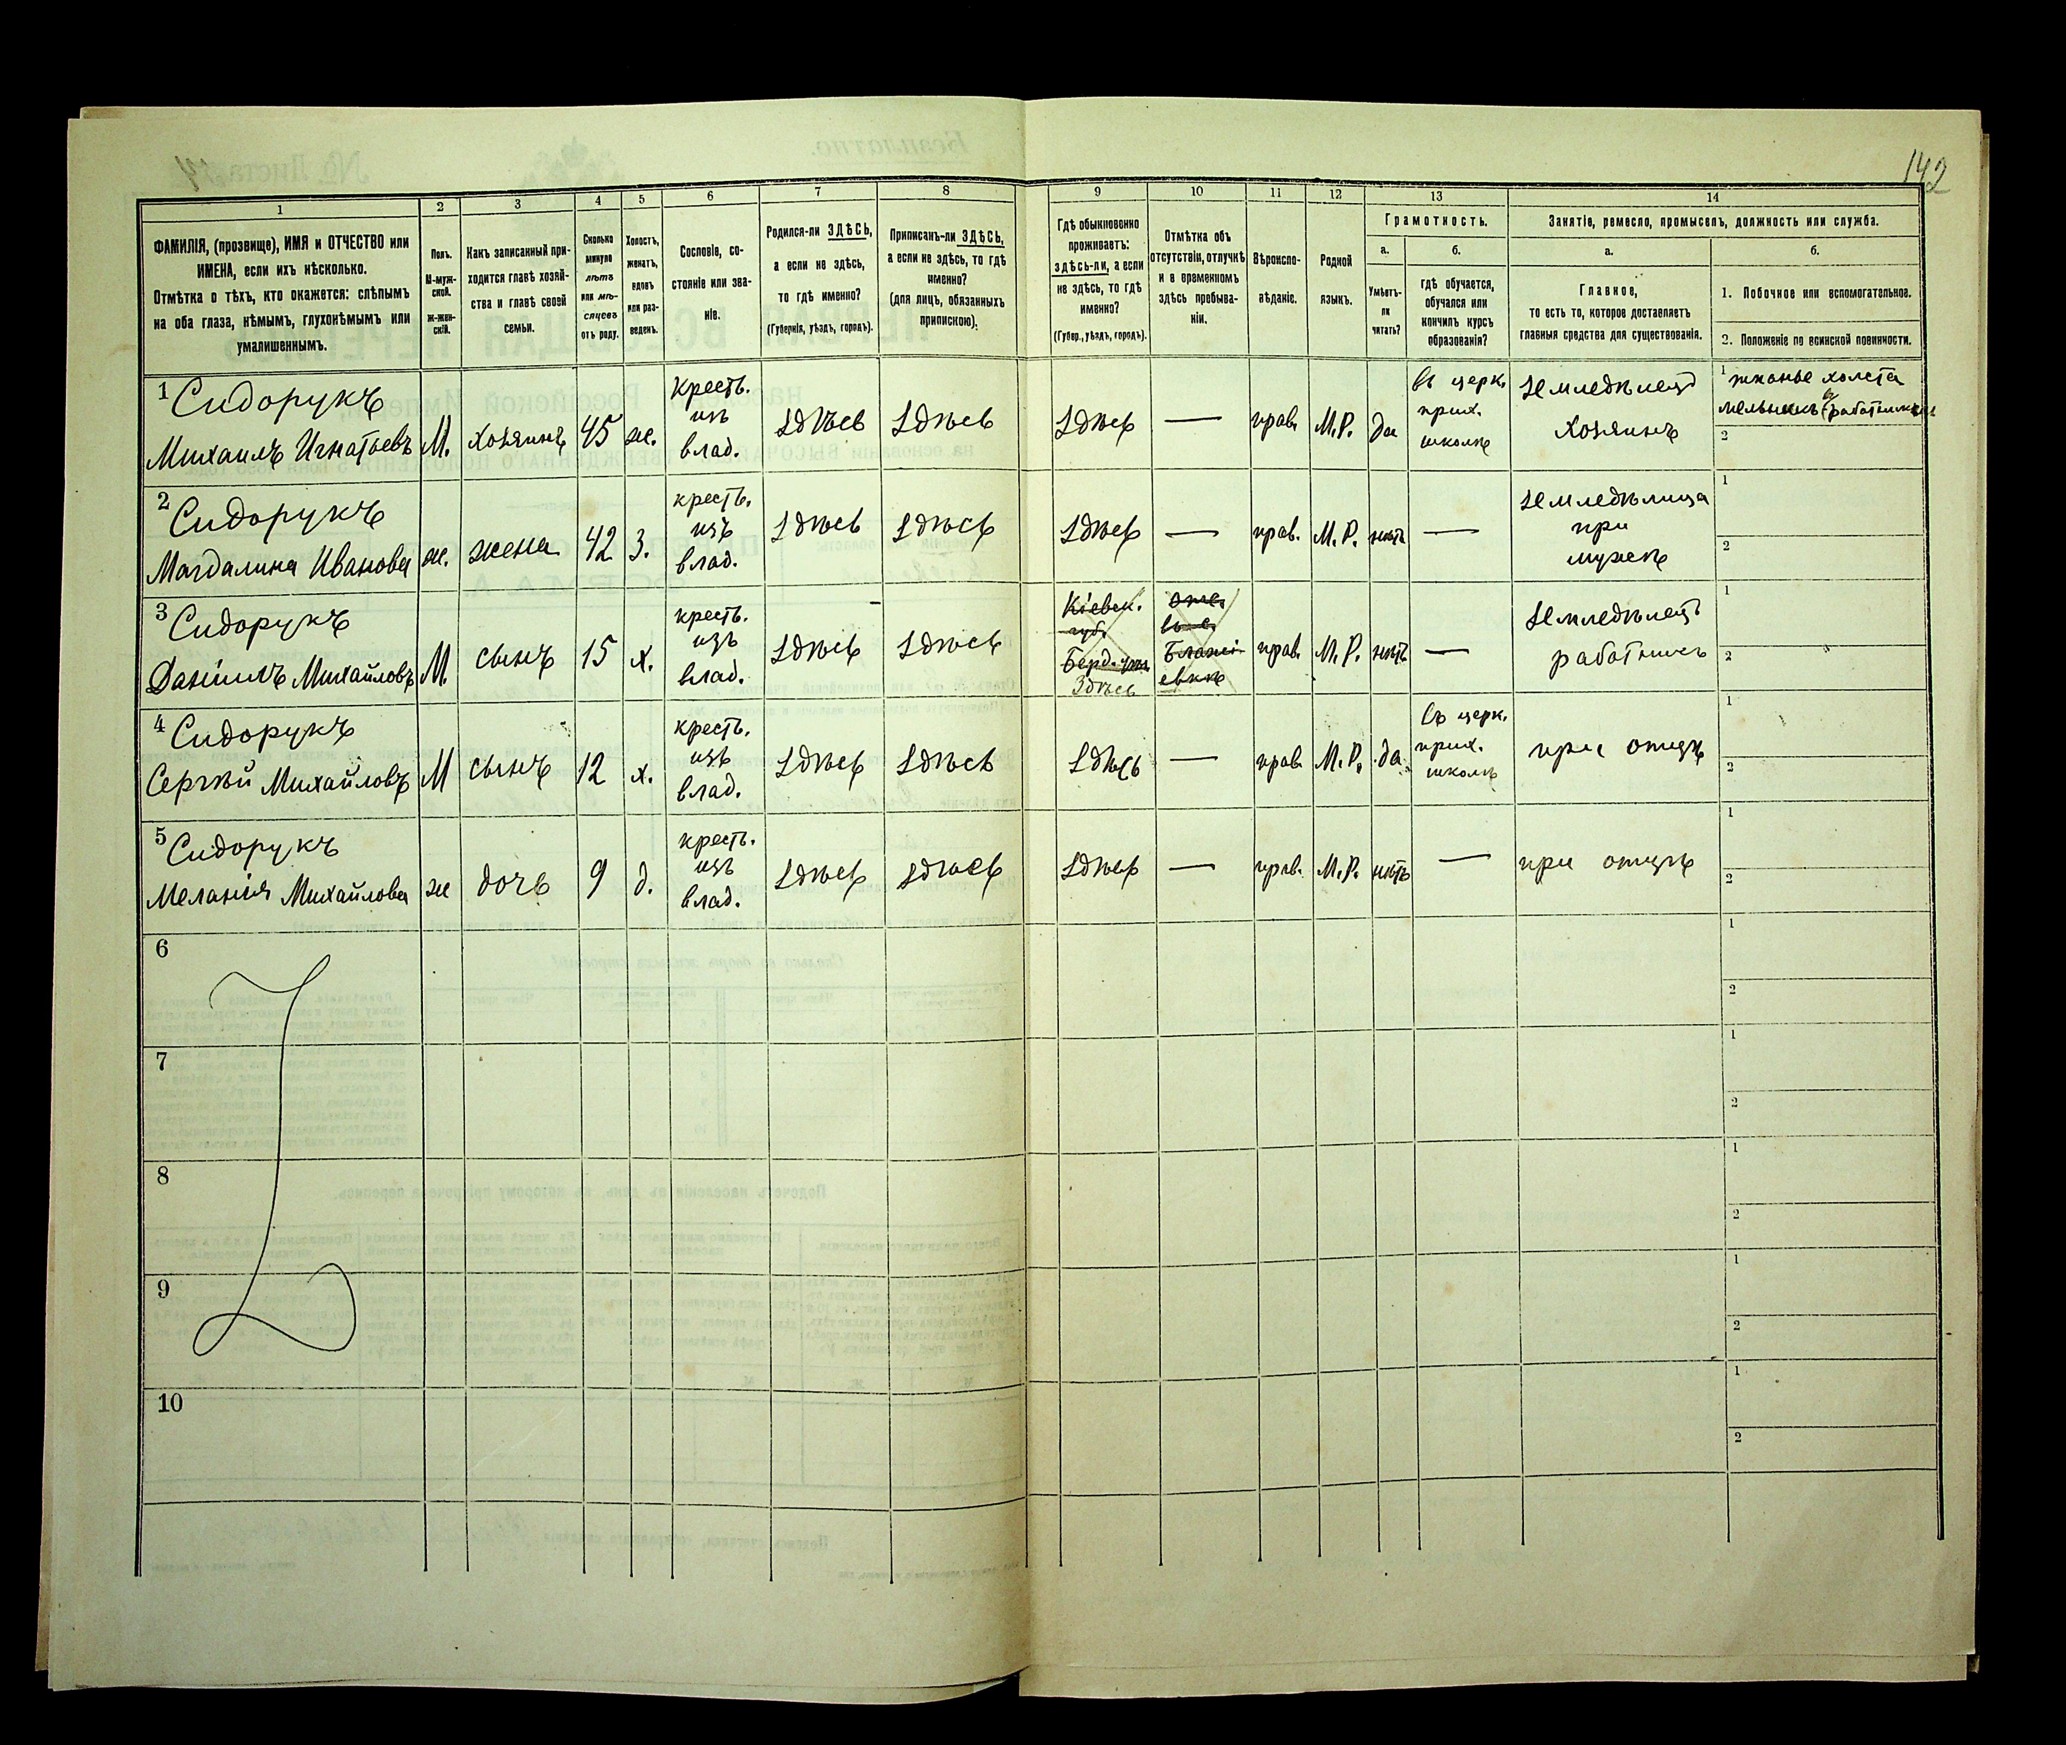 142
1
ФАМИЛІЯ, (прозвище), ИМЯ и ОТЧЕСТВО или
ИМЕНА, если ихъ нѣсколько.
Отмѣтка о тѣхъ, кто окажется: слѣпымъ
на оба глаза, нѣмымъ, глухонѣмымъ или
умалишеннымъ.
2
Полъ.
М-муж-
ской.
Ж-жен-
скій.
3
Какъ записанный при-
ходится главѣ хозяй-
ства и главѣ своей
семьи.
4
Сколько
минуло
лѣтъ
или мѣ-
сяцевъ
отъ роду.
5
Холостъ,
женатъ,
вдовъ
или раз-
веденъ.
6
Сословіе, со-
стояніе или зва-
ніе.
7
Родился-ли ЗДѢСЬ,
а если не здѣсь,
то гдѣ именно?
(Губернія, уѣздъ, городъ).
8
Приписанъ-ли ЗДѢСЬ,
а если не здѣсь, то гдѣ
именно?
(для лицъ, обязанныхъ
припискою).
9
Гдѣ обыкновенно
проживаетъ:
здѣсь-ли, а если
не здѣсь, то гдѣ
именно?
(Губер., уѣздъ, городъ).
10
Отмѣтка объ
отсутствіи, отлучкѣ
и о временномъ
здѣсь пребыва-
ніи.
11
Вѣроиспо-
вѣданіе.
12
Родной
языкъ.
13
Грамотность.
а.
Умѣетъ-
ли
читать?
б.
гдѣ обучается,
обучался или
кончилъ курсъ
образованія?
14
Занятіе, ремесло, промыселъ, должность или служба.
а.
Главное,
то есть то, которое доставляетъ
главныя средства для существованія.
б.
1. Побочное или вспомогательное.
2. Положеніе по воинской повинности.
1 Сидорукъ
Михаилъ Игнатьевъ
М.
хозяинъ
45
ж.
кресть.
изъ
влад.
здѣсь
здѣсь
здѣсь
—
прав.
М.Р.
да
въ церк.
прих.
школѣ
земледѣлецъ
хозяинъ
1 тканье холста
мельникъ
2
2 Сидорукъ
Магдалина Иванова
ж.
жена
42
З.
кресть.
изъ
влад.
здѣсь
здѣсь
здѣсь
—
прав.
М.Р.
нѣтъ
—
земледѣлица
при
мужѣ
1
2
3 Сидорукъ
Даніилъ Михайловъ
М.
сынъ
15
х.
кресть.
изъ
влад.
здѣсь
здѣсь
Кіевск.
губ.
Берд. уѣз.
Здѣсь
прав.
М.Р.
нѣтъ
—
земледѣлецъ
работникъ
1
2
4 Сидорукъ
Сергѣй Михайловъ
М
сынъ
12
х.
кресть.
изъ
влад.
здѣсь
здѣсь
здѣсь
—
прав.
М.Р.
да
въ церк.
прих.
школѣ
при отцѣ
1
2
5 Сидорукъ
Меланія Михайлова
ж
дочь
9
д.
кресть.
изъ
влад.
здѣсь
здѣсь
здѣсь
—
прав.
М.Р.
нѣтъ
—
при отцѣ
1
2
6
1
2
7
1
2
8
1
2
9
1
2
10
1
2